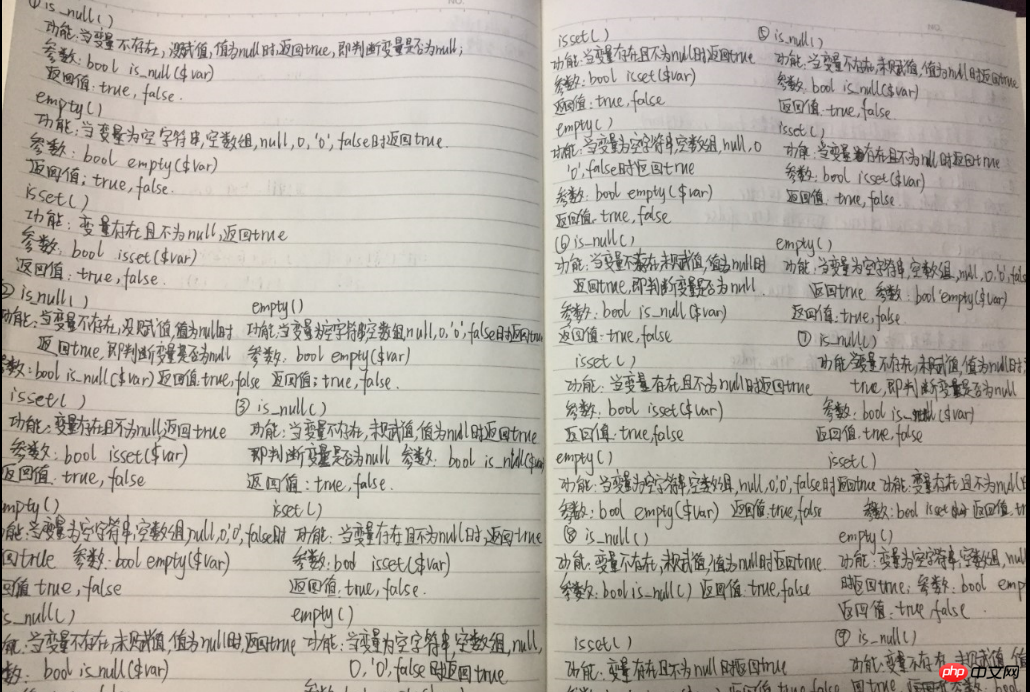 ①is_null()
功能:当变量不存在,没赋值,值为null时,返回true,即判断变量是否为null;
参数:bool is_null($var)
返回值:true,false.
empty()
功能:当变量为空字符串,空数组,null,0,'0',false时返回true.
参数:bool empty($var)
返回值:true,false.
isset()
功能:变量存在且不为null,返回true
参数:bool isset($var)
返回值:true,false.
② is_null()
功能:当变量不存在,没赋值,值为null时
返回true,即判断变量是否为null
参数:bool is_null($var)返回值true,false
empty()
功能:当变量为空字符串,空数组,null,0,'0',false时返回true
参数:bool empty($var)
返回值:true,false.
isset()
功能:变量存在且不为null,返回true
参数:bool isset($var)
返回值:true,false
③ is_null()
功能:当变量不存在,未赋值,值为null时返回true
即判断变量是否为null 参数:bool is_null($var)
返回值:true,false.
mpty()
能:当变量为空字符串,空数组,null,0,'0',false时
回true 参数:bool empty($var)
回值 true,false
isset()
功能:当变量存在且不为null时,返回true
参数:bool isset($var)
返回值:true,false.
is_null()
能:当变量不存在,未赋值,值为null时,返回true
数: bool is_null($var)
empty()
功能:当变量为空字符串,空数组,null,
0,'0',false时返回true
isset()
功能:当变量存在且不为null时返回true
参数:bool isset($var)
返回值:true,false
empty()
功能:当变量为空字符串,空数组,null,0
'0',false时返回true
参数:bool empty($var)
返回值:true,false
⑤is_null()
功能:当变量不存在,未赋值,值为null时返回true
参数:bool is_null($var)
返回值:true,false
isset()
功能:当变量存在且不为null时返回true
参数:bool isset($var)
返回值:true,false.
⑥is_null()
功能:当变量不存在,未赋值,值为null时
返回true,即判断变量是否为null.
参数:bool is_null($var)
返回值:true,false
empty()
功能:当变量为空字符串,空数组,null,0,'0',false
返回true 参数:bool empty($var)
返回值:true,false.
isset()
功能:当变量存在且不为null时返回true
参数:bool isset($var)
返回值:true,false
⑦ is_null()
功能:变量不存在,未赋值,值为null时
true,即判断变量是否为null
参数:bool is_null($var)
返回值:true,false
empty()
功能:当变量为空字符串,空数组,null,0,'0',false时返回true
参数:bool empty($var) 返回值:true,false
isset()
功能:变量存在且不为null
参数:bool isset 返回值:
⑧ is_null()
功能:变量不存在,未赋值,值为null时返回true
参数:bool is_null() 返回值:true,false
empty()
功能:变量为空字符串,空数组,null
时返回true;参数:bool emp
返回值:true,false.
isset()
功能:变量存在且不为null时返回true
⑨ is_null()
功能:变量不存在,未赋值,值
php中文网